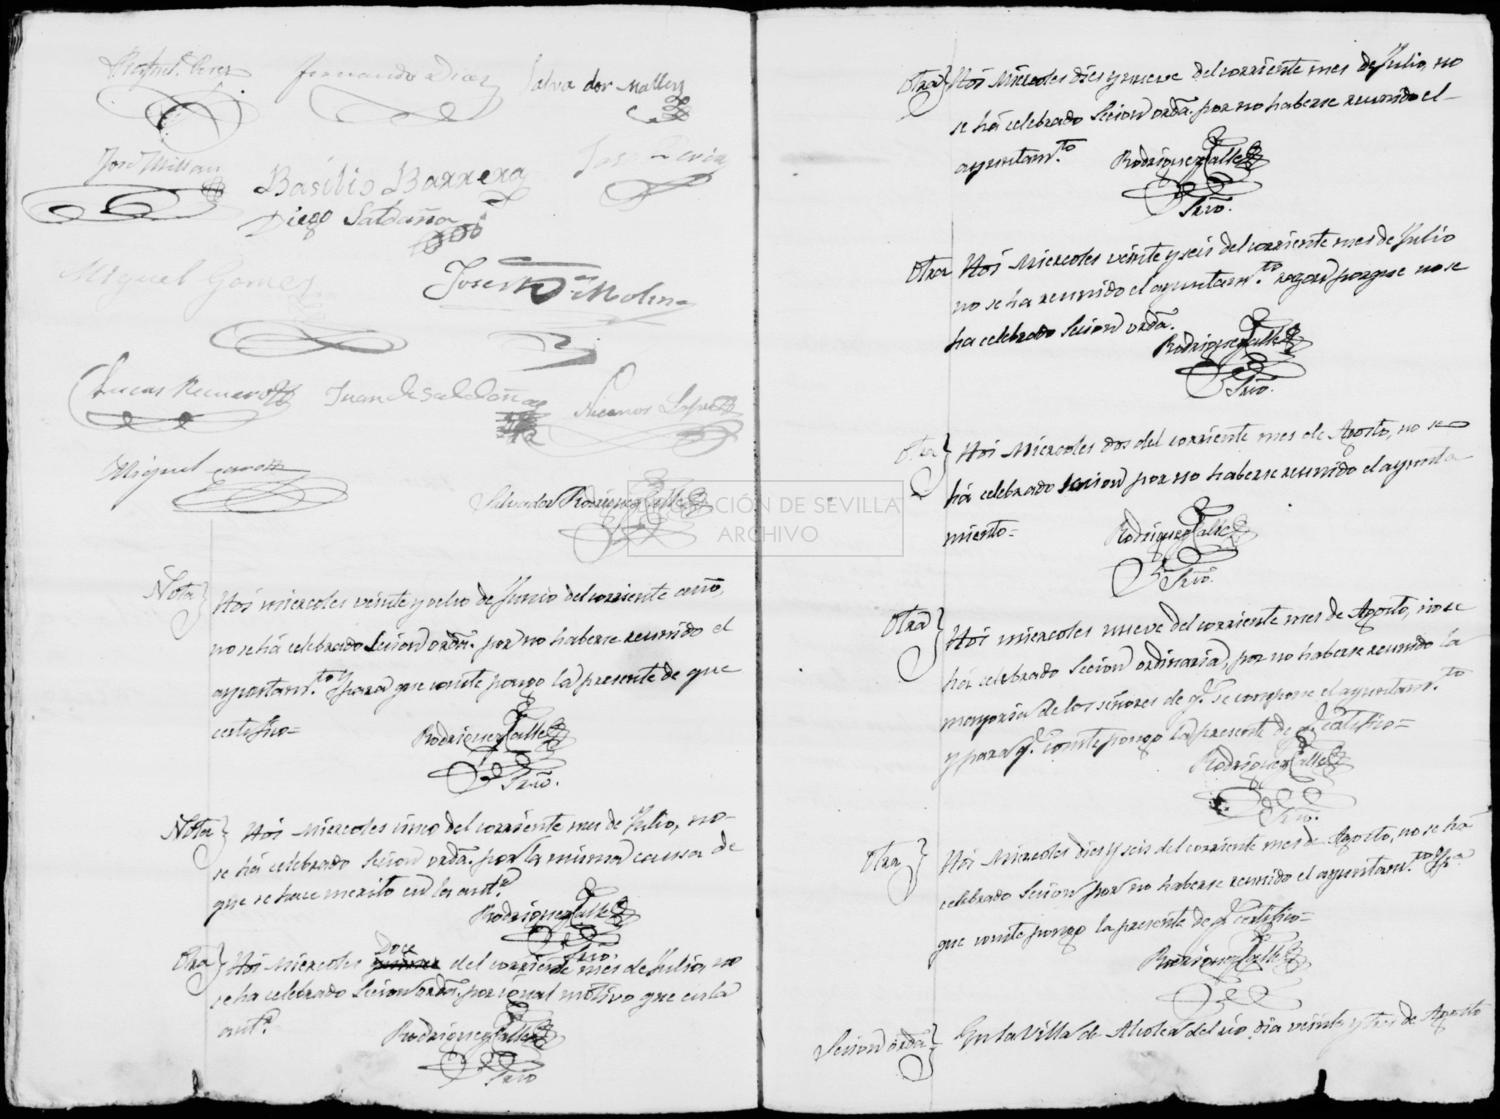 Rafael Perez Fernando Diaz Salvador Mallen
José Millan Basilio Barrera José
Diego Saldaña
Miguel Gomez Josef Molina
Lucas Juan de Saldaña Nicanor Lopez
Miguel
Salvador Rodriguez Calle
DIPUTACIÓN DE SEVILLA
ARCHIVO
Nota} Hoi miercoles veinte y ocho de Junio del corriente año,
no se há celebrado Secion ordª. por no haberse reunido el
ayuntam.to y para que conste pongo la presente de que
certifico=
Rodriguez Calle
Srio.
Nota} Hoi Miercoles cinco del corriente mes de Julio, no
se há celebrado Secion ordª. por la misma causa de
que se hace merito en la antr.
Rodriguez Calle
Srio.
Otra} Hoi Miercoles doce del corriente mes de Julio, no
se ha celebrado Secion ordª. por igual motivo que en la
antr.
Rodriguez Calle
Srio
Otra} Hoi Miercoles dies y nueve del corriente mes de Julio, no
se há celebrado Secion ordª. por no haberse reunido el
ayuntam.to Rodriguez Calle
Srio.
Otra Hoi Miercoles veinte y seis del corriente mes de Julio
no se ha reunido el ayuntam.to razon porque no se
ha celebrado Secion ordª.
Rodriguez Calle
Srio.
Otra} Hoi Miercoles dos del corriente mes de Agosto, no se
há celebrado secion por no haberse reunido el ayunta
miento= Rodriguez Calle
Srio.
Otra} Hoi miercoles nueve del corriente mes de Agosto, no se
há celebrado Secion ordinaria, por no haberse reunido la
mayoria de los señores de q.e se compone el ayuntam.to
y para q.e conste pongo la presente de q.e certifico=
Rodriguez Calle
Srio.
Otra} Hoi Miercoles dies y seis del corriente mes de Agosto, no se há
celebrado Secion por no haberse reunido el ayuntam.to y p.a
que conste pongo la presente de q.e certifico=
Rodriguez Calle
Secion ordª.} En la Villa de Alcolea del rio dia veinte y tres de Agosto